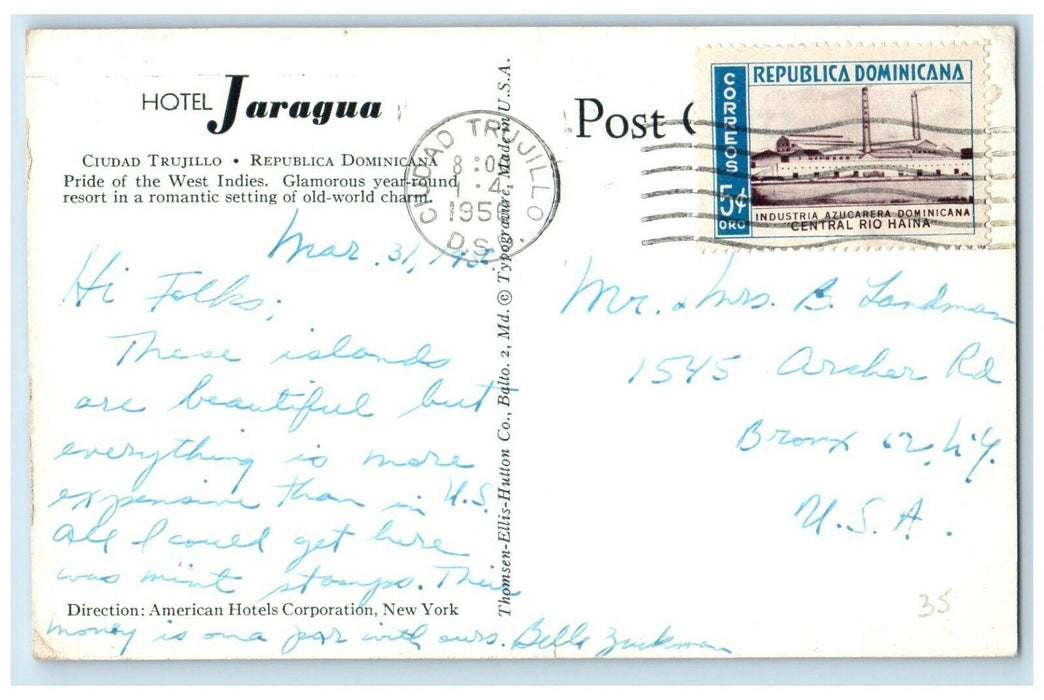 HOTEL Jaragua
CIUDAD TRUJILLO • REPUBLICA DOMINICANA
Pride of the West Indies. Glamorous year-round
resort in a romantic setting of old-world charm.
Mar. 31,
Hi Folks;
These islands
are beautiful but
everything is more
expensive than in U.S.
All I could get here
was mint stamps. Their
money is on a par with ours. Belle Zuckman
Direction: American Hotels Corporation, New York
Thomsen-Ellis-Hutton Co., Balto. 2, Md. © Typogravure, Made in U.S.A.
CIUDAD TRUJILLO
8:00
1·4
195
D.S.D.
Post
REPUBLICA DOMINICANA
CORREOS
5¢
ORO
INDUSTRIA AZUCARERA DOMINICANA
"CENTRAL RIO HAINA"
Mr. & Mrs. B. Landman
1545 Archer Rd
Bronx 62, N.Y.
U.S.A.
35